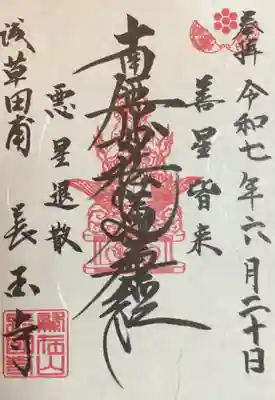 奉拝
令和七年六月二十日
善星皆来
南無妙法蓮華経
悪星退散
浅草田甫
長玉寺